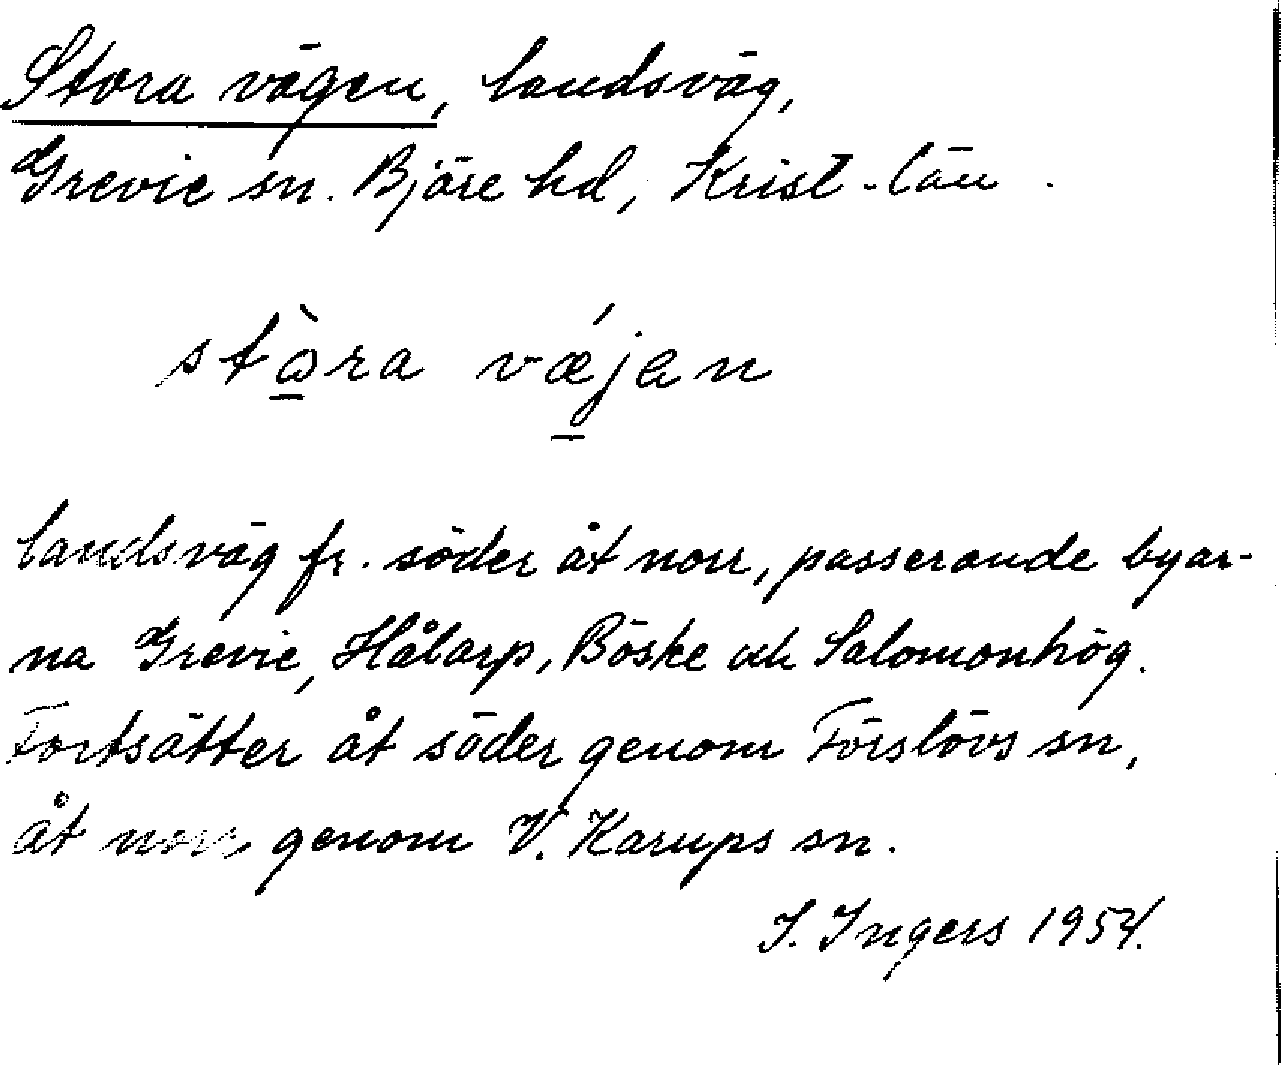 Stora vägen, landsväg,
Grevie sn. Bjäre hd, Krist. län.
stòra vǽjan
landsväg fr. söder åt norr, passerande byar-
na Grevie, Hålarp, Böske och Salomonhög.
Fortsätter åt söder genom Förslövs sn,
åt norr genom V. Karups sn.
I. Ingers 1954.